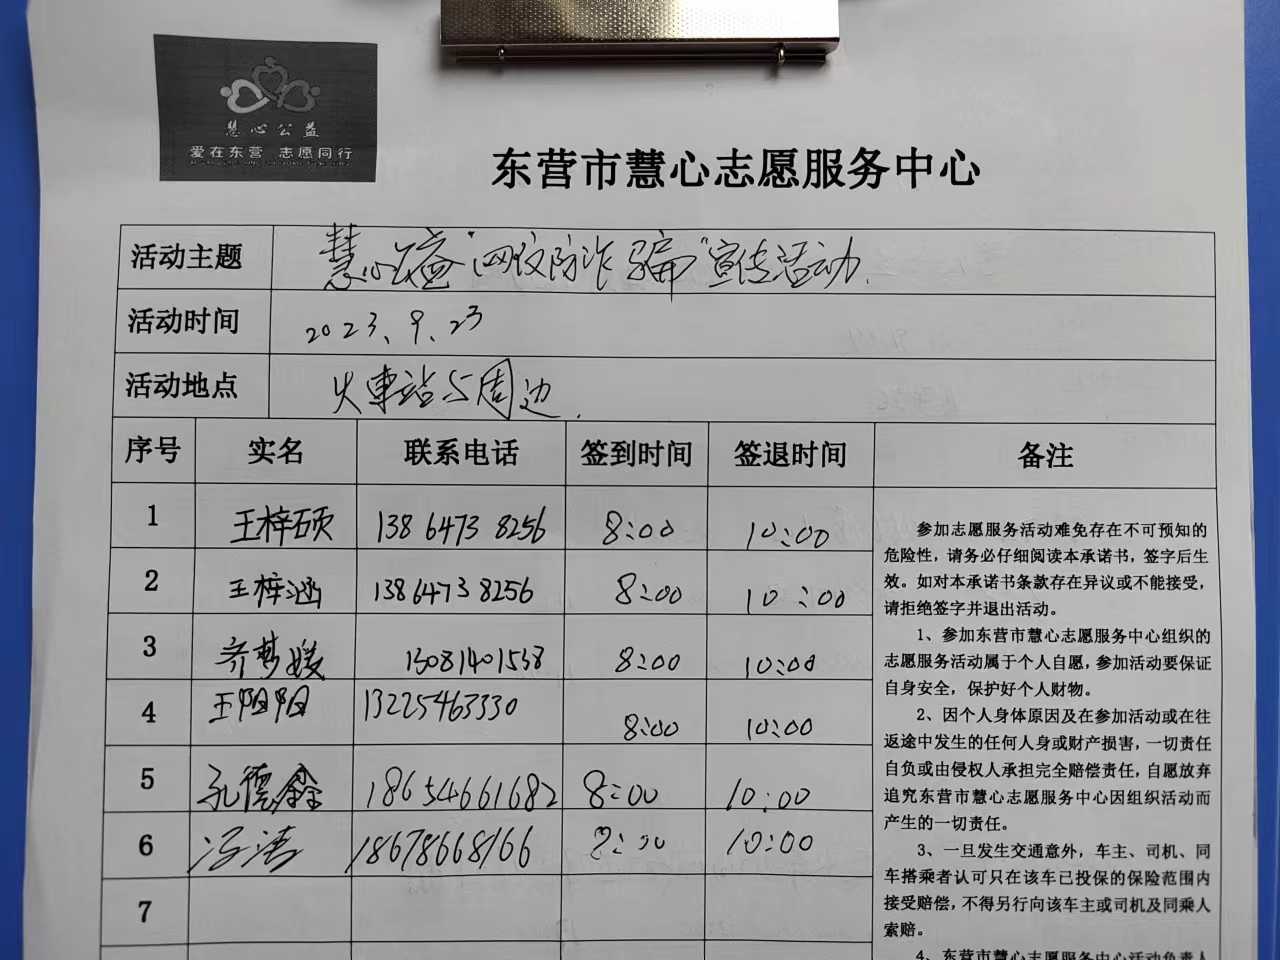 慧心公益
爱在东营 志愿同行
东营市慧心志愿服务中心
活动主题 慧心公益“网络防诈骗”宣传活动.
活动时间 2023、9、23
活动地点 火車站与周边.
序号 实名 联系电话 签到时间 签退时间 备注
1 王梓硕 138 6473 8256 8:00 10:00
2 王梓涵 13864738256 8:00 10:00
3 齐梦媛 13081401538 8:00 10:00
4 王阳阳 13225463330 8:00 10:00
5 孔德鑫 18654661682 8:00 10:00
6 冯涛 18678668166 8:00 10:00
7
参加志愿服务活动难免存在不可预知的
危险性，请务必仔细阅读本承诺书，签字后生
效。如对本承诺书条款存在异议或不能接受，
请拒绝签字并退出活动。
1、参加东营市慧心志愿服务中心组织的
志愿服务活动属于个人自愿，参加活动要保证
自身安全，保护好个人财物。
2、因个人身体原因及在参加活动或在往
返途中发生的任何人身或财产损害，一切责任
自负或由侵权人承担完全赔偿责任，自愿放弃
追究东营市慧心志愿服务中心因组织活动而
产生的一切责任。
3、一旦发生交通意外，车主、司机、同
车搭乘者认可只在该车已投保的保险范围内
接受赔偿，不得另行向该车主或司机及同乘人
索赔。
4、东营市慧心志愿服务中心活动负责人